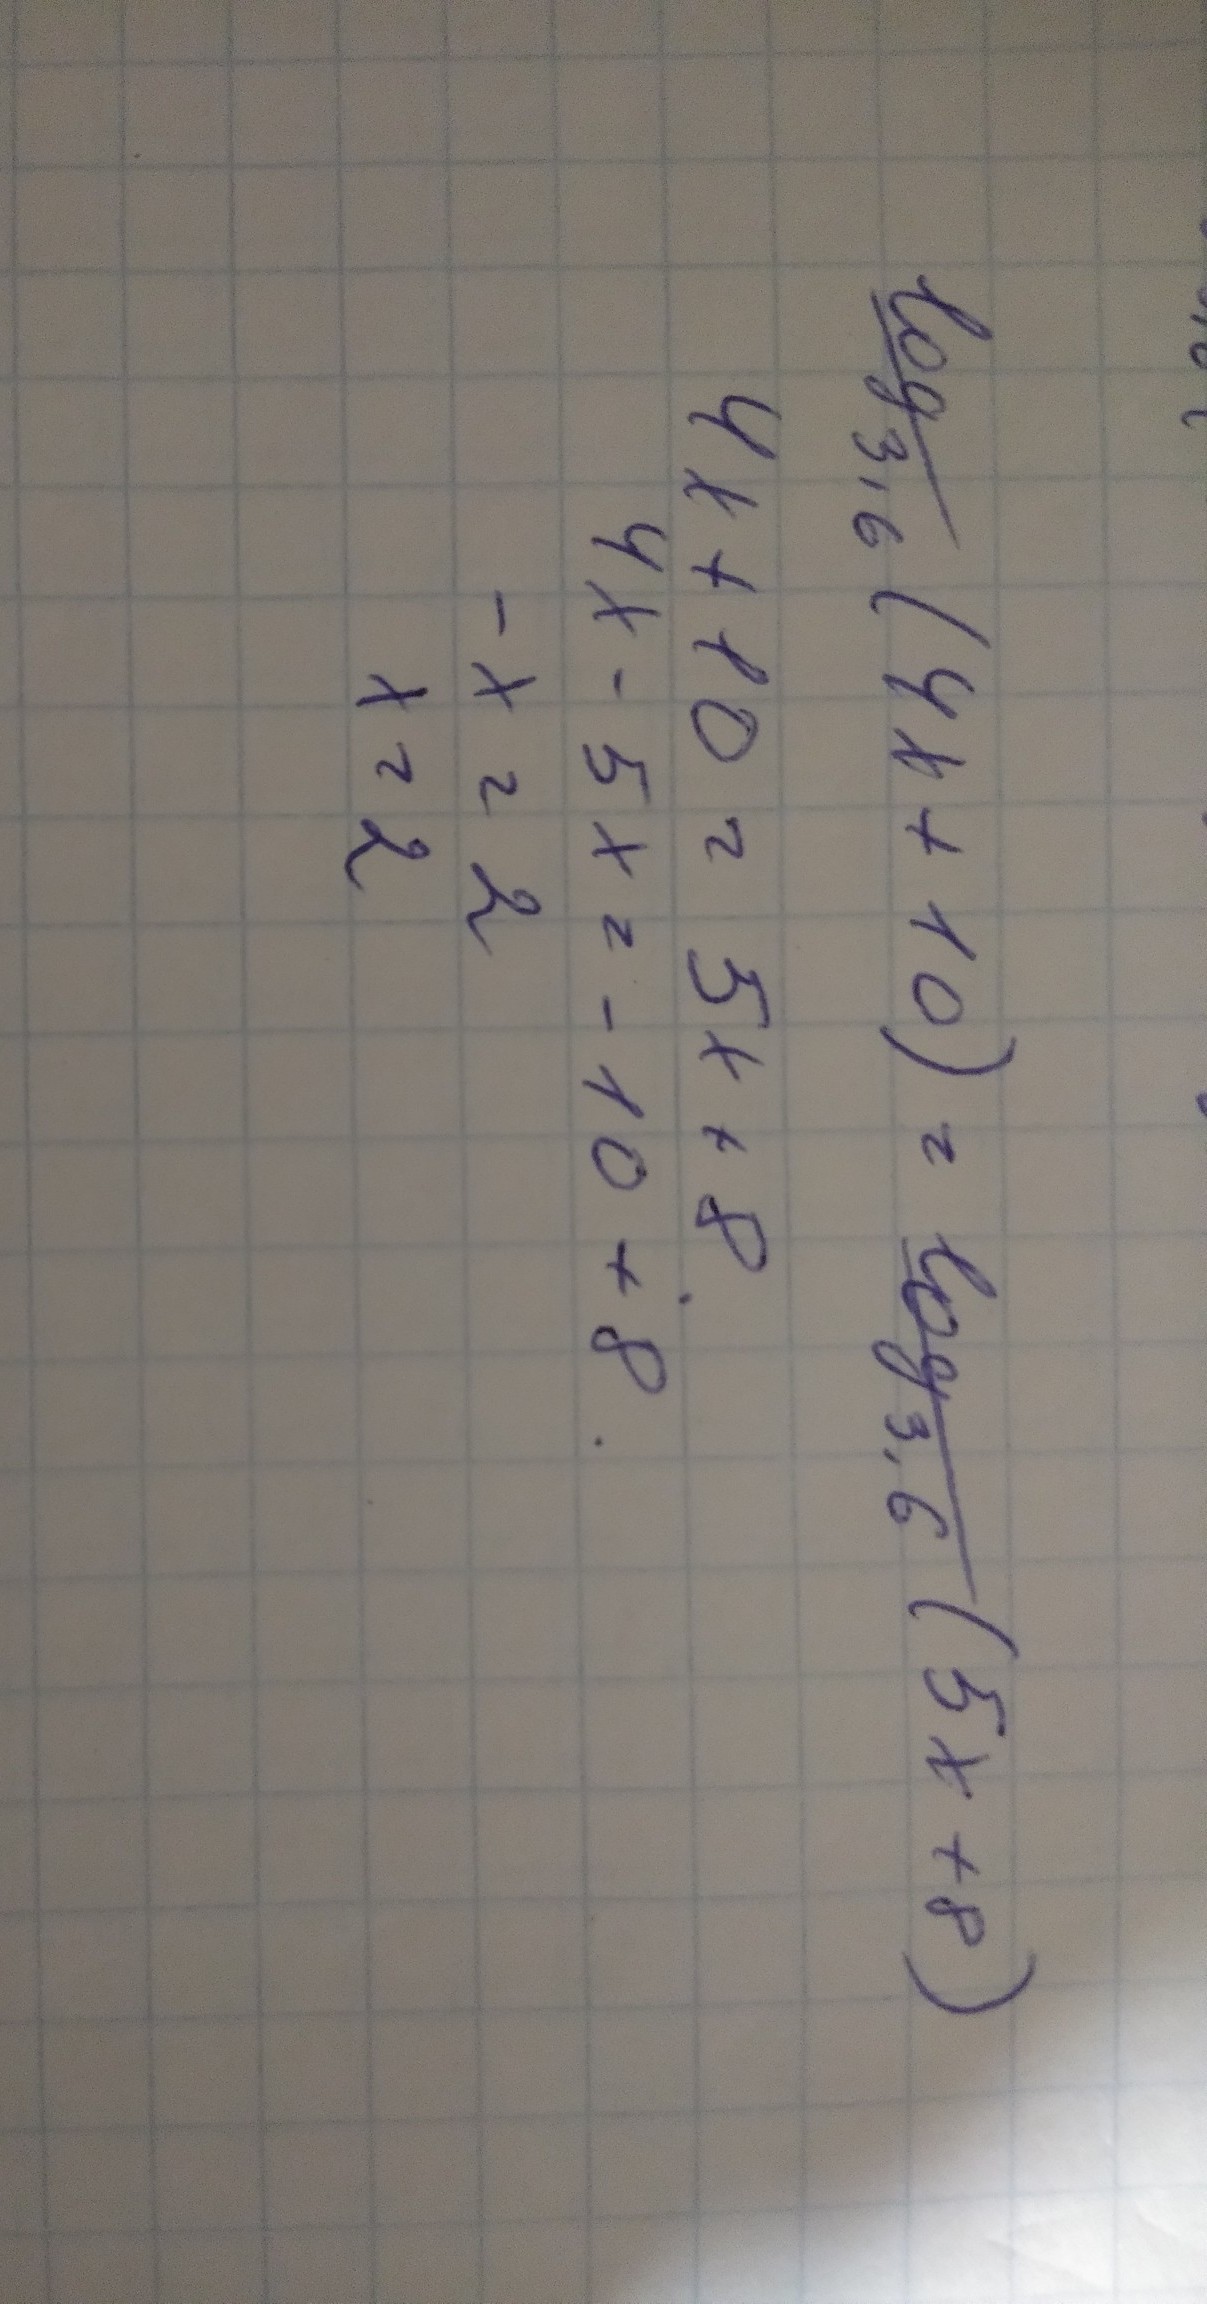 log₃,₆(4x+10) = log₃,₆(5x+8)
4x+10 = 5x+8
4x-5x = -10+8
-x = 2
x = 2